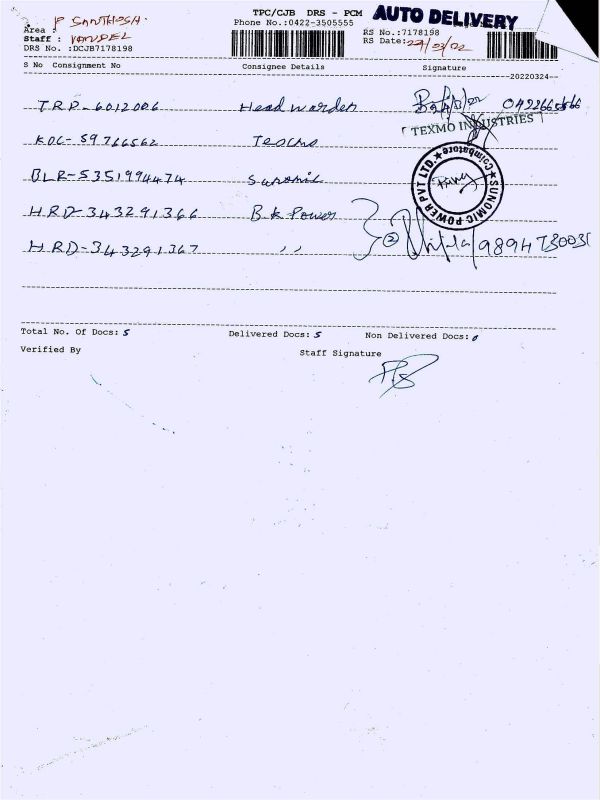 TPC/CJB DRS - PCM AUTO DELIVERY
P SANTHOSH
Area :
Phone No.:0422-3505555
RS No.:7178198
Staff :
RS Date:
DRS No. :DCJB7178198
S No Consignment No Consignee Details Signature
20220324
TRP-6012006 Head warden
TEXMO INDUSTRIES
KOC-59766562
BLR-5351994474 Sunomic
SUNOMIC POWER PVT LTD. ★ Coimbatore ★
HRD-343291366 B.k Power
HRD-343291367 ,,
Total No. Of Docs: 5 Delivered Docs: 5 Non Delivered Docs: 0
Verified By Staff Signature